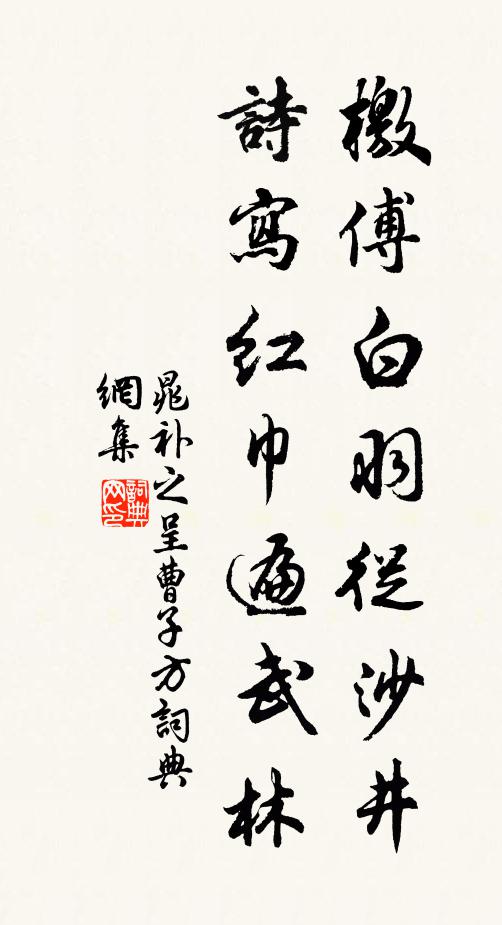 檄傅白羽從沙井
詩寫紅巾遍武林
晁补之呈曹子方詞典
網集
詞典網印